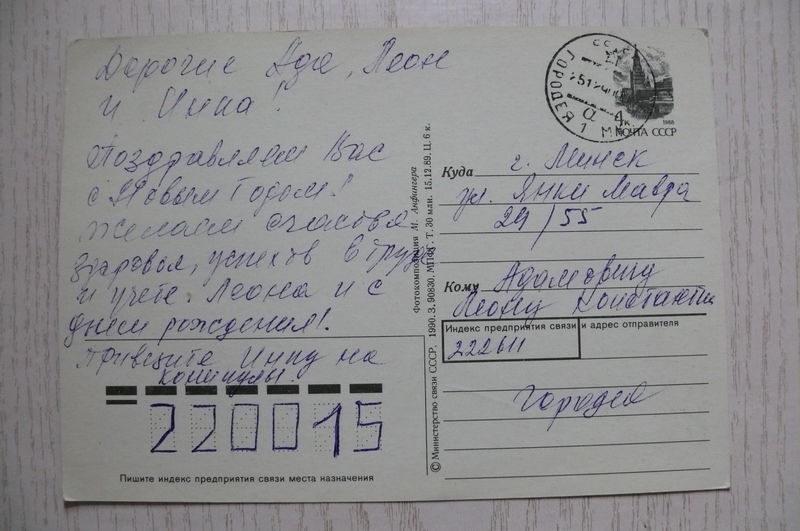 Дорогие Ада, Леон
и Инна!
Поздравляем Вас
с Новым Годом!
Желаем счастья
здоровья, успехов в труде
и учёбе. Леона и с
днем рождения!
Привезите Инну на
каникулы.
220015
Пишите индекс предприятия связи места назначения
© Министерство связи СССР, 1990. З. 90830. МПФГ. Т. 30 млн. 15.12.89. Ц. 6 к.
Фотокомпозиция М. Анфингера
ГОРОДЕЯ
4к
1988
ПОЧТА СССР
Куда г. Минск
ул. Янки Мавра
29/55
Кому Адамович
Леону Константин
Индекс предприятия связи и адрес отправителя
222611
Городея